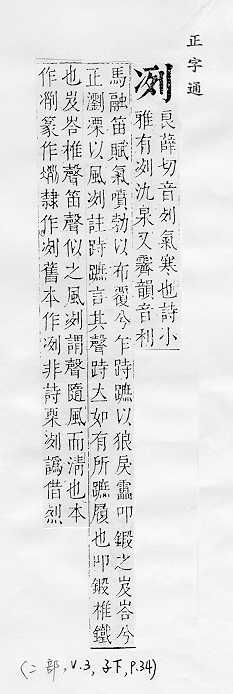 正字通
冽
良薛切音列氣寒也詩小
雅有冽氿泉又霽韻音利
馬融笛賦氣噴勃以布覆兮乍跱蹠以狼戾靁叩鍛之岌峇兮
正瀏溧以風冽註跱蹠言其聲跱立如有所蹠履也叩鍛椎鐵
也岌峇椎聲笛聲似之風冽謂聲隨風而淸也本
作 篆作 隸作冽舊本作冽非詩栗冽譌借烈
(冫部, V.3, 子下, P.34)